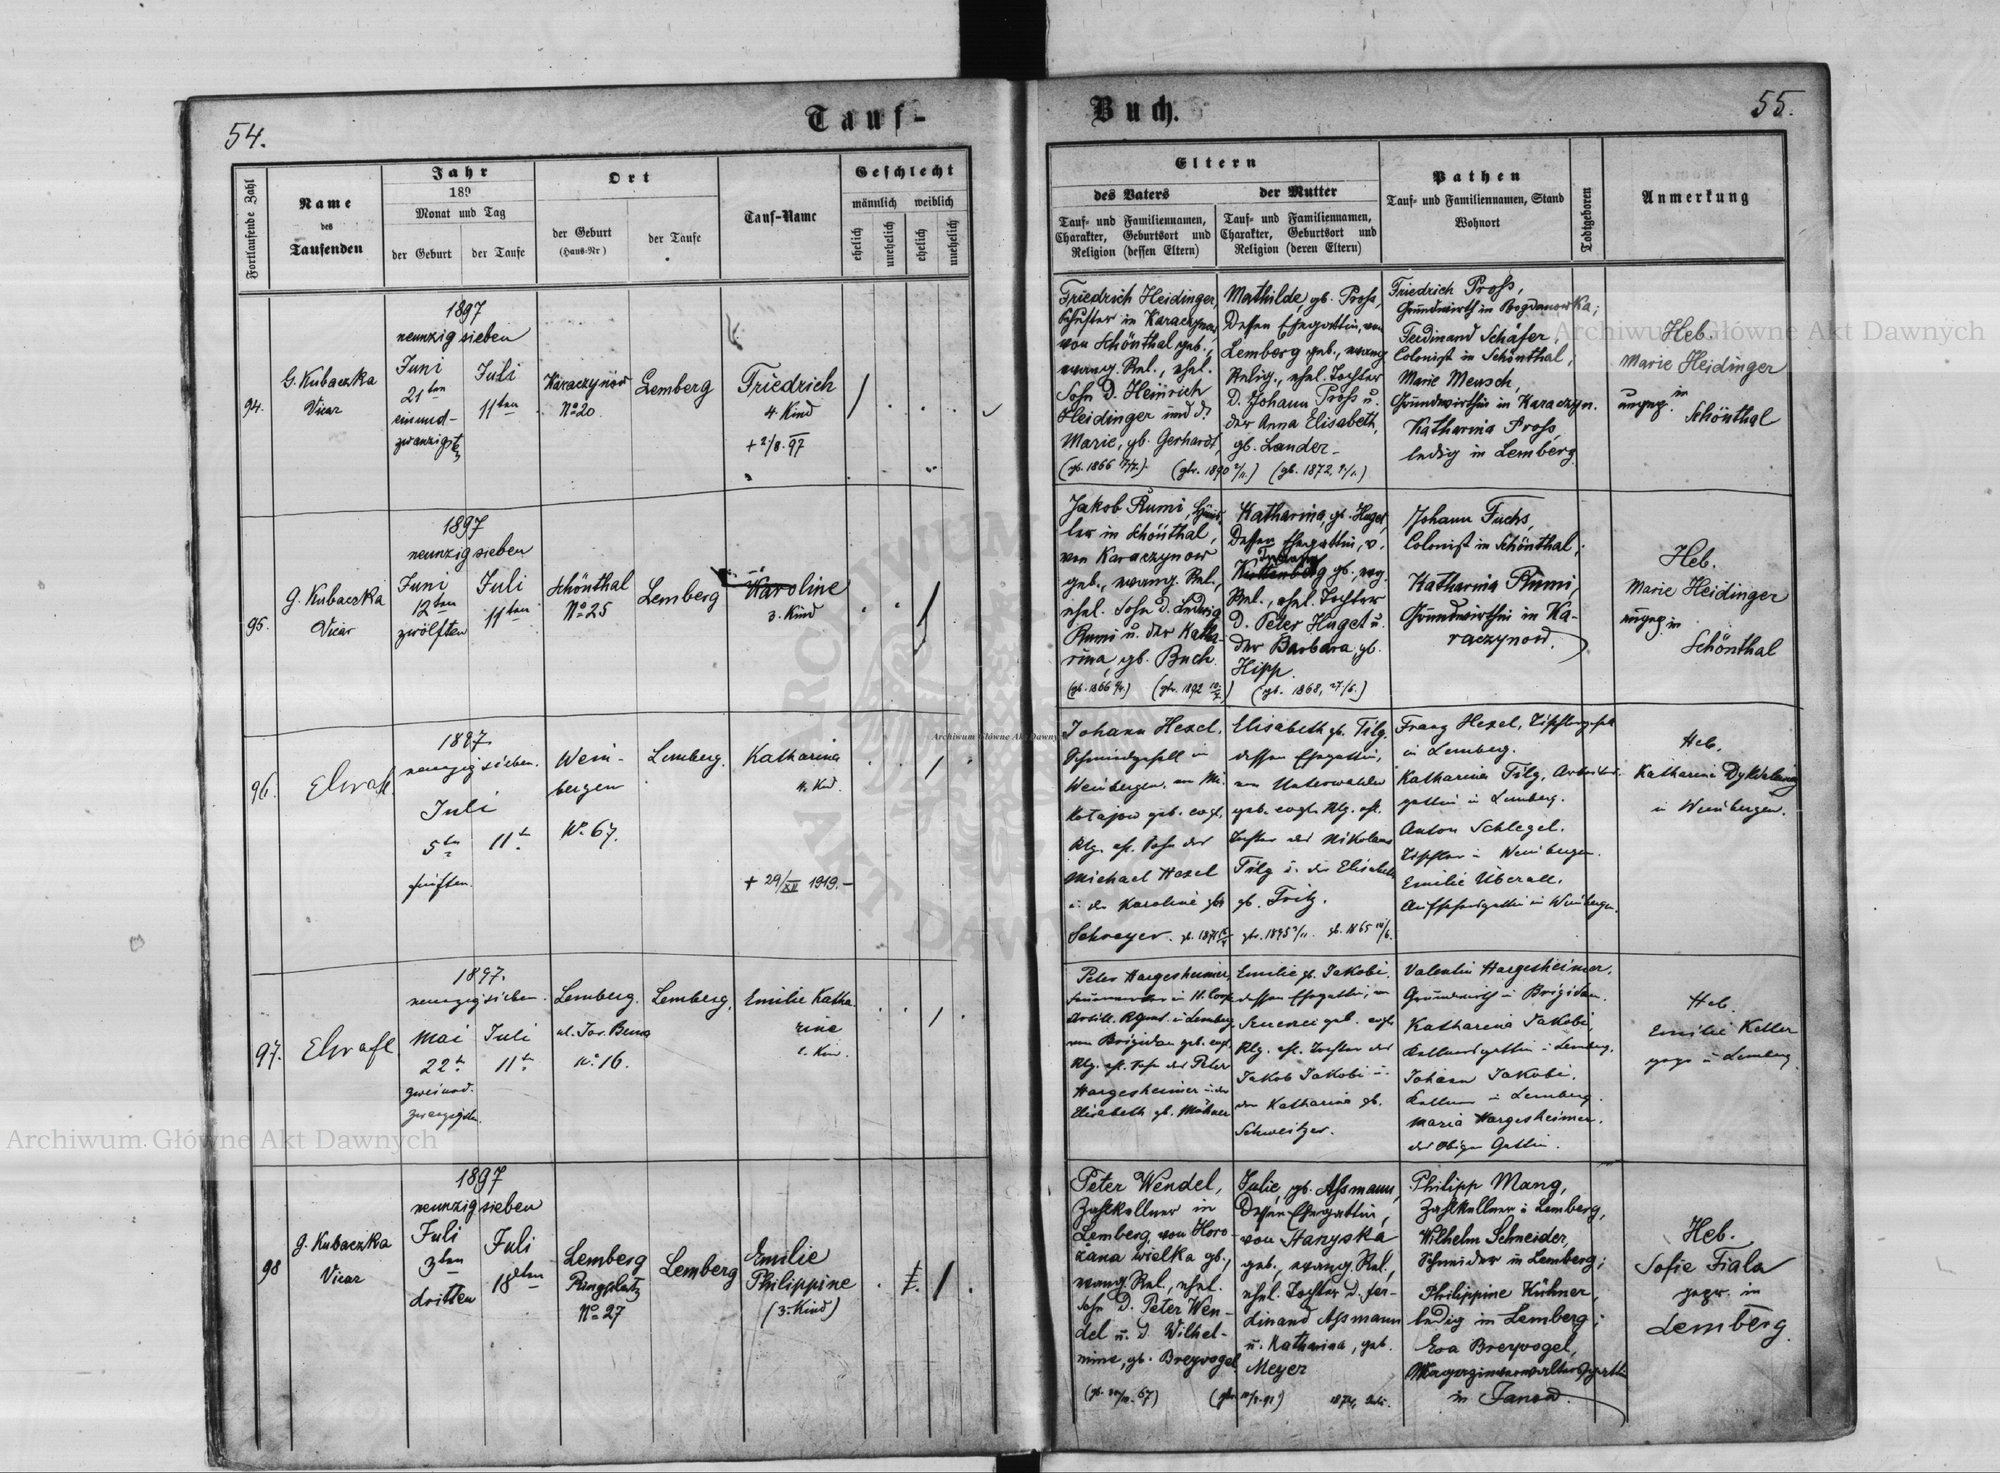 54.
Tauf-
Buch.
55.
Fortlaufende Zahl
Name
des
Taufenden
Jahr
189
Monat und Tag
der Geburt
der Taufe
Ort
der Geburt
(Haus-Nr)
der Taufe
Tauf-Name
Geschlecht
männlich
weiblich
ehelich
unehelich
ehelich
unehelich
Eltern
des Vaters
Tauf- und Familiennamen,
Charakter, Geburtsort und
Religion (dessen Eltern)
der Mutter
Tauf- und Familiennamen,
Charakter, Geburtsort und
Religion (deren Eltern)
Pathen
Tauf- und Familiennamen, Stand
Wohnort
Todtgeboren
Anmerkung
94.
G. Kubaczka
Vicar
1897
neunzig sieben
Juni
21ten
einund-
zwanzigsten
Juli
11ten
Karaczynow
No 20.
Lemberg
Friedrich
4. Kind
+ 2/8. 97
Friedrich Heidinger,
Schuster in Karaczynow,
von Schönthal geb.,
evang. Rel., ehel.
Sohn d. Heinrich
Heidinger und d.
Marie, gb. Gerhardt,
Mathilde, gb. Pross,
Dessen Ehegattin, von
Lemberg geb., evang
Relig., ehel. Tochter
d. Johann Pross u.
der Anna Elisabeth,
gb. Lander.
Friedrich Pross,
Grundwirth in Bogdanowka;
Ferdinand Schäfer,
Colonist in Schönthal;
Marie Mensch,
Grundwirthin in Karaczyn.
Katharina Pross,
ledig in Lemberg
Heb.
Marie Heidinger
ungep. in
Schönthal
95.
G. Kubaczka
Vicar
1897
neunzig sieben
Juni
12ten
zwölften
Juli
11ten
Schönthal
No 25
Lemberg
Karoline
3. Kind
Jakob Rumi, Häus-
ler in Schönthal,
von Karaczynow
geb., evang. Rel.,
ehel. Sohn d. Ludwig
Rumi u. der Katha-
rina, gb. Buch.
Katharina, gb. Huget,
Dessen Ehegattin, v.
geb., evg.
Rel., ehel. Tochter
d. Peter Huget u.
der Barbara, gb.
Hipp.
(gb. 1868, 27/6.)
Johann Fuchs,
Colonist in Schönthal;
Katharina Rumi,
Grundwirthin in Ka-
raczynow.
Heb.
Marie Heidinger
ungep. in
Schönthal
96.
1897.
neunzig sieben.
Juli
5ten
fünften.
11t
Wein-
bergen
No 67.
Lemberg.
Katharina
+ 29/XII 1919.-
Johann Hexel,
Schmiedgesell in
Weinbergen, an Mi-
kolajow geb. evgl.
Rlg. ehl. Sohn der
Michael Hexel
u. der Karoline gb.
Schreyer.
Elisabeth gb. Tilg,
dessen Ehegattin,
von Unterwalden
geb. evgl. Rlg. ehl.
Tochter des Nikolaus
Tilg u. der Elisabeth
gb. Fritz.
Franz Hexel, Tischlergesell
in Lemberg.
Katharina Tilg, Arbeiters-
gattin in Lemberg.
Anton Schlegel,
Tischler in Weinbergen.
Emilie Überall,
Heb.
Katharina
in Weinbergen.
97.
1897.
neunzig sieben.
Mai
22t
zweiund-
zwanzigsten
Juli
11t
Lemberg.
No 16.
Lemberg.
Emilie Katha-
rine
1. Kind.
Peter Hargesheimer,
Feuerwerker in 11. Corps
Artill. Rgmt. in Lemberg
von Brigidau geb. evgl.
Rlg. ehl. Sohn des Peter
Hargesheimer u. der
Elisabeth gb.
Emilie gb. Jakobi,
dessen Ehegattin, in
geb. evgl.
Rlg. ehl. Tochter des
Jakob Jakobi u.
der Katharina gb.
Schweitzer.
Valentin Hargesheimer,
Grundwirth in Brigidau.
Katharina Jakobi,
Kellnersgattin in Lemberg.
Johann Jakobi,
Kellner in Lemberg.
Maria Hargesheimer,
des Obigen Gattin.
Heb.
Emilie Keller
gepr. in Lemberg
98
G. Kubaczka
Vicar
1897
neunzig sieben
Juli
3ten
dritten
Juli
18ten
Lemberg
Ringplatz
No 27
Lemberg
Emilie
Philippine
(3. Kind)
Peter Wendel,
Zahlkellner in
Lemberg, von Horo-
zana wielka gb.,
evang. Rel., ehel.
Sohn d. Peter Wen-
del u. d. Wilhel-
mine, gb. Breyvogel
Julie, gb. Assmann,
Dessen Ehegattin,
von Hanyska
geb., evang. Rel.,
ehel. Tochter d. Fer-
dinand Assmann
u. Katharina, geb.
Meyer
Philipp Mang,
Zahlkellner in Lemberg,
Wilhelm Schneider,
Schneider in Lemberg;
Philippine Kühner,
ledig in Lemberg;
Eva Breyvogel,
Magazinsverwaltersgattin
in Janow.
Heb.
Sofie Fiala
gepr. in
Lemberg.
Archiwum Główne Akt Dawnych
Archiwum Główne Akt Dawnych
Archiwum Główne Akt Dawnych